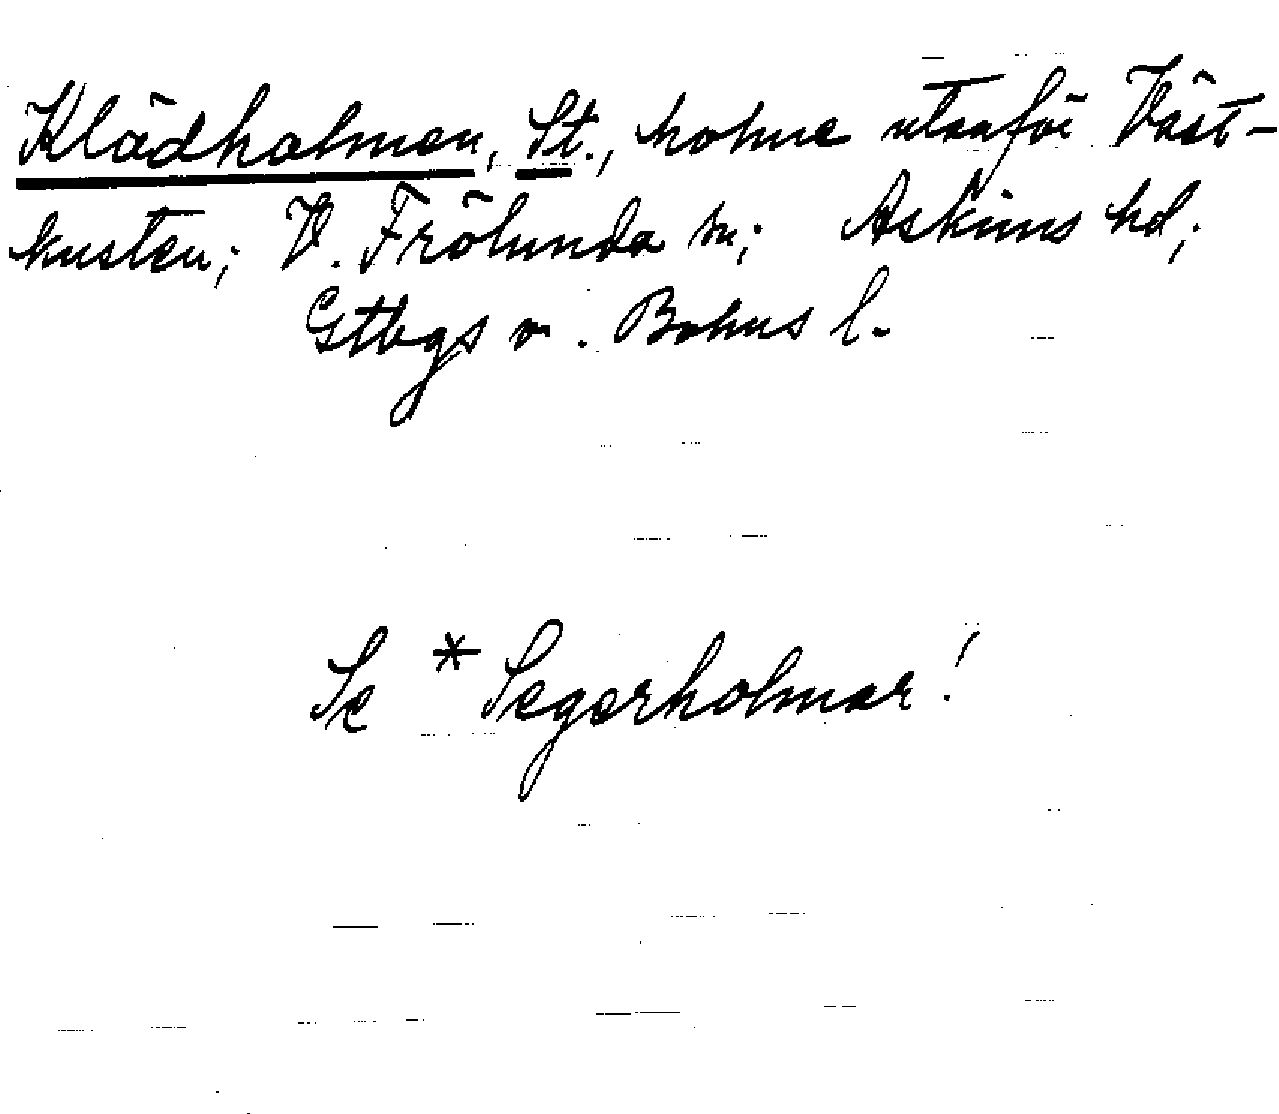 Klädholmen, St., holme utanför Väst-
kusten; V. Frölunda sn; Askims hd;
Gtbgs o. Bohus l.
Se *Segerholmar!